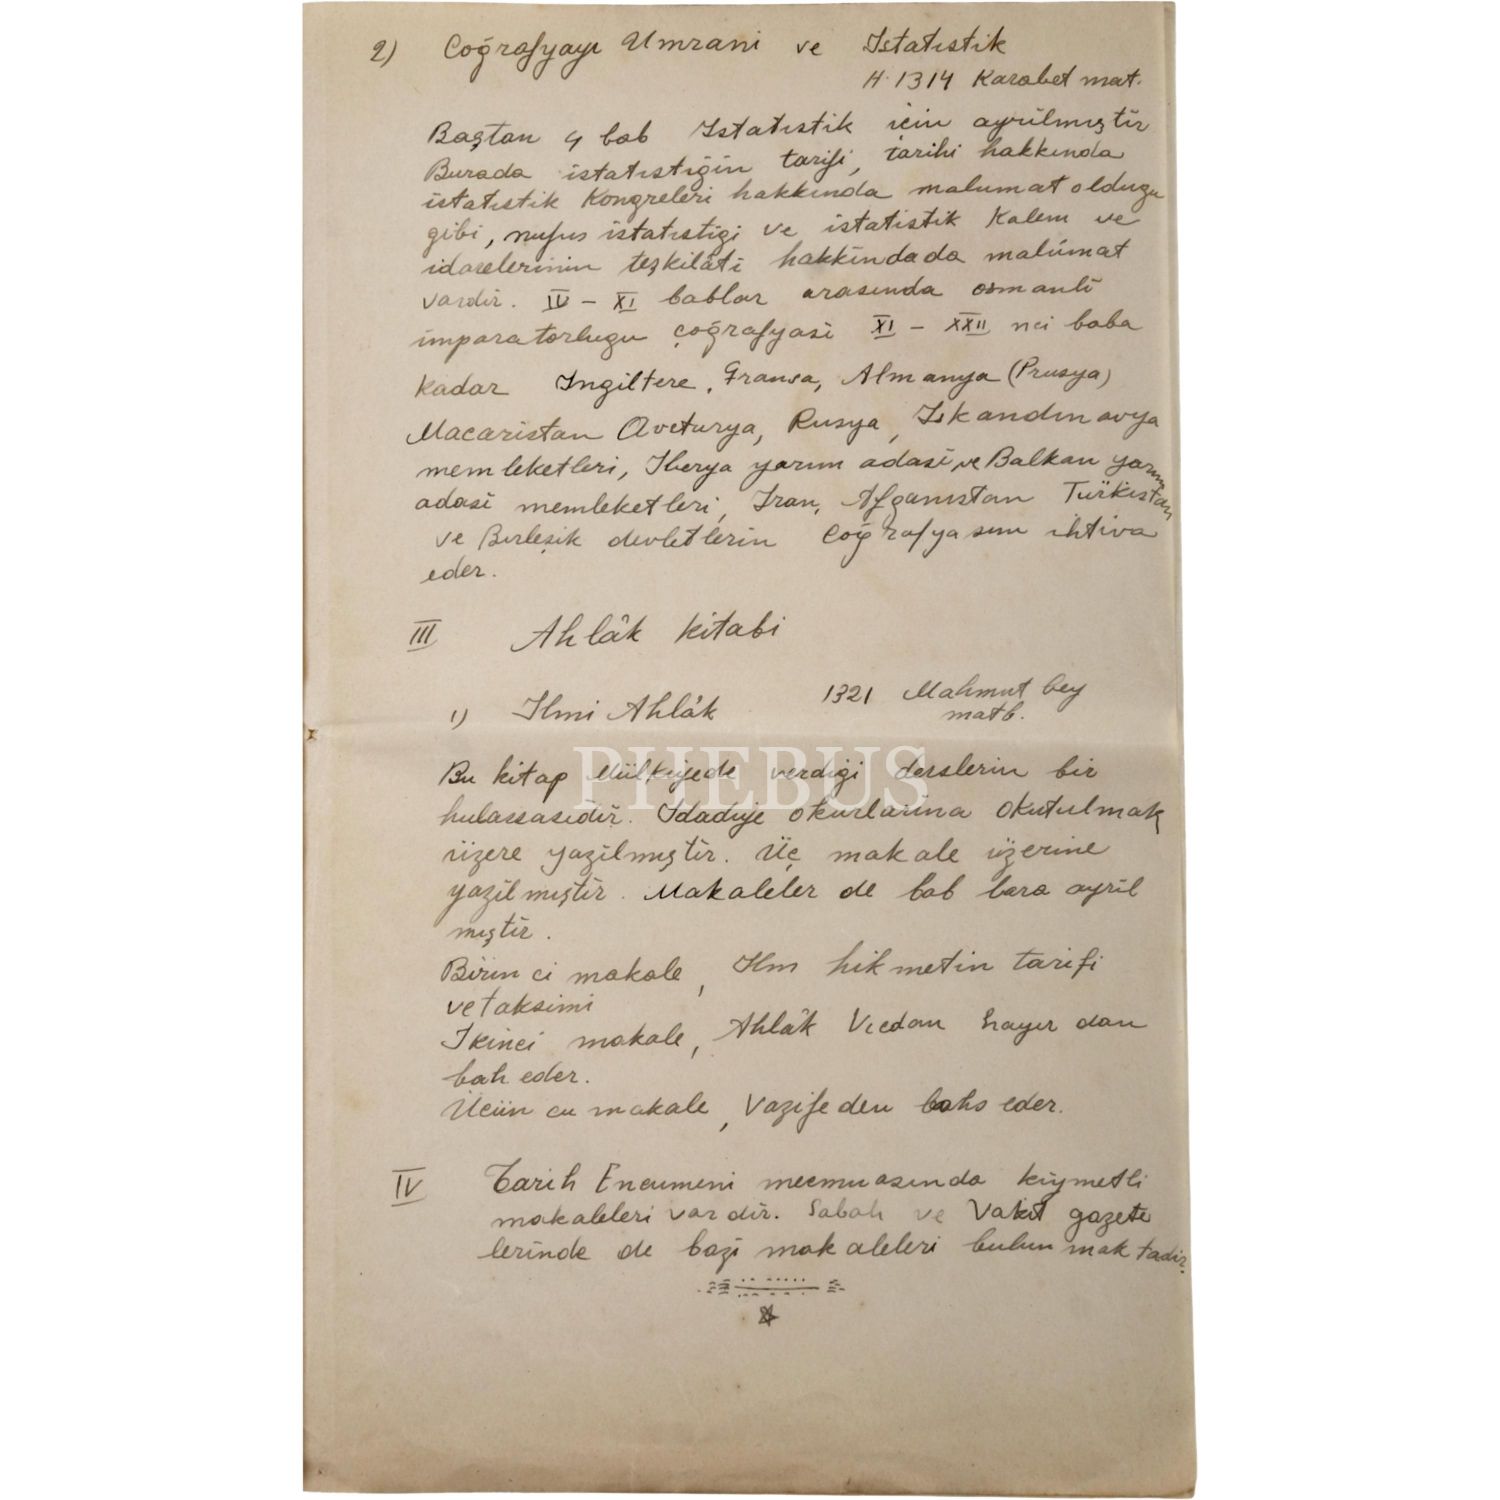 2) Coğrafyayı Umrani ve Istatıstik
H. 1314 Karabet mat.
Baştan 4 bab Istatıstik icin ayrılmıştir
Burada istatıstiğin tarifi, tarihi hakkında
istatıstik Kongreleri hakkında malumat oldugu
gibi, nufus istatıstigi ve istatistik Kalem ve
idarelerinin teşkilâti hakkindada malûmat
vardir. IV – XI bablar arasında osmanli
imparatorlugu çoğrafyasi XI – XXII nci baba
kadar Ingiltere, Fransa, Almanya (Prusya)
Macaristan Avcturya, Rusya, Iskandınavya
memleketleri, Iberya yarım adasi ve Balkan yarım
adasi memleketleri, Iran, Afganıstan Türkistan
ve Bırleşik devletlerin Coğrafyasını ihtiva
eder.
III Ahlâk kitabi
1) Ilmi Ahlâk 1321 Mahmut bey
matb.
Bu kitap Mülkiyede verdigi derslerin bir
hulassasıdir. Idadiye okurlarina okutulmak
üzere yazilmıştir. Üç makale üzerine
yazilmıştir. Makaleler de bab lara ayril
mıştir.
Birinci makale, Ilm hikmetin tarifi
ve taksimi
Ikinci makale, Ahlâk Vicdan hayır dan
bah eder.
Ücün cu makale, Vazifeden bahs eder.
IV Tarih Encumeni mecmuasında kiymetli
makaleleri vardir. Sabah ve Vakıt gazete
lerinde de bazi makaleleri bulunmaktadir.
PHEBUS